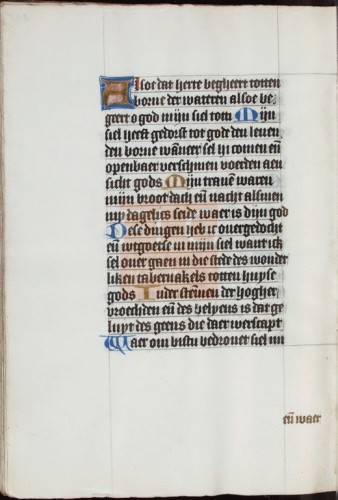 Alsoe dat herte begheert totten
borne der wateren alsoe be
geert o god mijn siel tott Mijn
siel heeft gedorst tot gode den leuen
den borne wāneer sel ic comen eñ
openbaer verschinen voerden aen
sicht gods Mijn tranē waren
mijn broot dach eñ nacht alsmen
my dagelics seide waer is dijn god
Dese dingen heb ic ouergedocht
eñ wtgoetse in mijn siel want ick
sel ouer gaen in die stede des wonder
liken tabernakels totten huyse
gods In der stēmen der hogher
vroechden eñ des belyens is dat ge
luyt des geens die daer werscapt
Waer om bistu bedroeuet siel mī
eñ waer